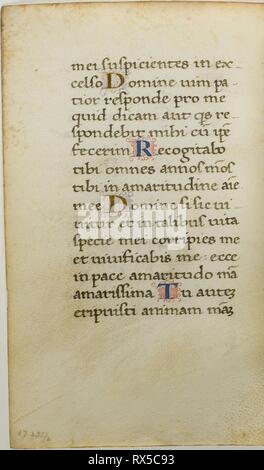 mei suspicientes in ex-
celso Domine uim pa-
tior responde pro me
quid dicam aut q͂s re-
spondebit mihi cū ip̄e
fecerim Recogitabo
tibi omnes annos m̄os
tibi in amaritudine aīe
mee Domine si sic ui-
uitur et in talibus uita
specie mei corripies me
et uiuificabis me: ecce
in pace amaritudo m̄a
amarissima Tu autez
eripuisti animam māz
alamy
Image ID: RX5C93
www.alamy.com